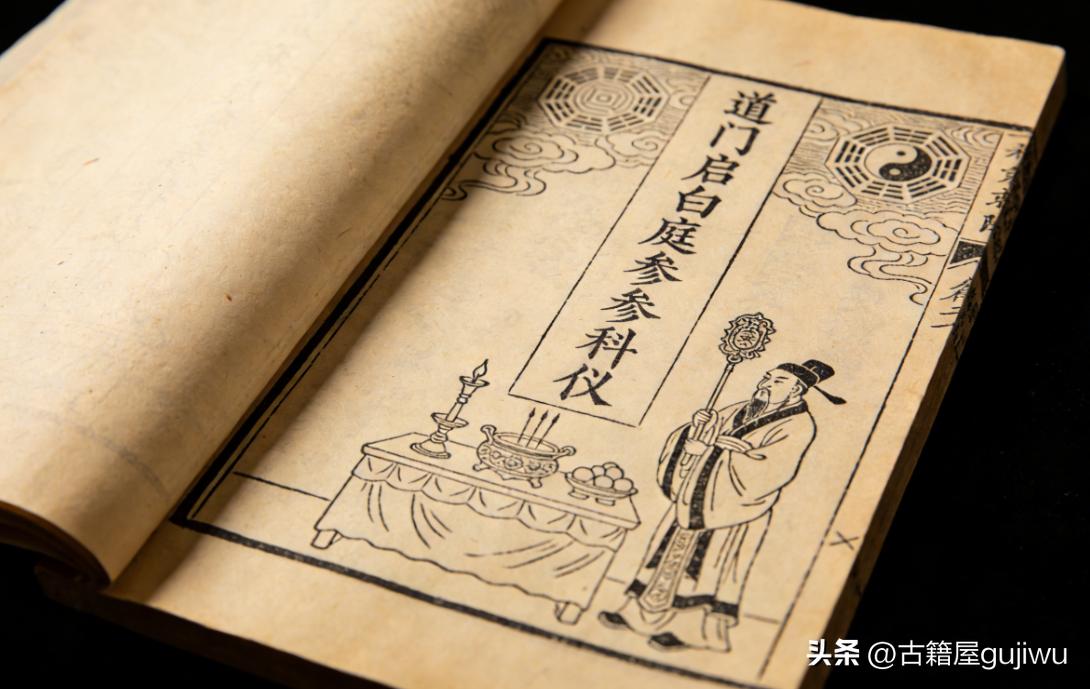 道门启白庭参参科仪
头条 @古籍屋gujiwu